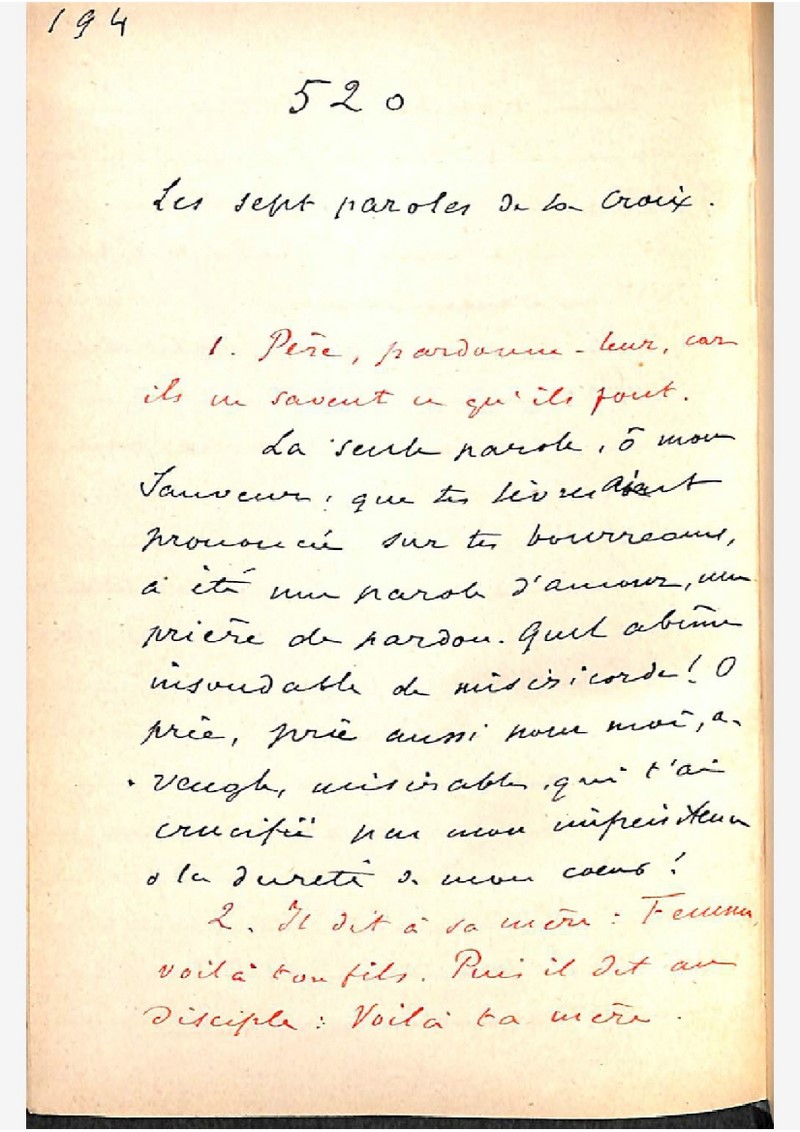 194
520
Les sept paroles de la Croix.
1. Père, pardonne-leur, car
ils ne savent ce qu'ils font.
La seule parole, ô mon
Sauveur, que tes lèvres aient
prononcée sur tes bourreaux,
a été une parole d'amour, une
prière de pardon. Quel abîme
insondable de miséricorde! O
prie, prie aussi pour moi, a-
veugle, misérable, qui t'ai
crucifié par mon impénitence
& la dureté de mon coeur!
2. Il dit à sa mère: Femme,
voilà ton fils. Puis il dit au
disciple: Voilà ta mère.